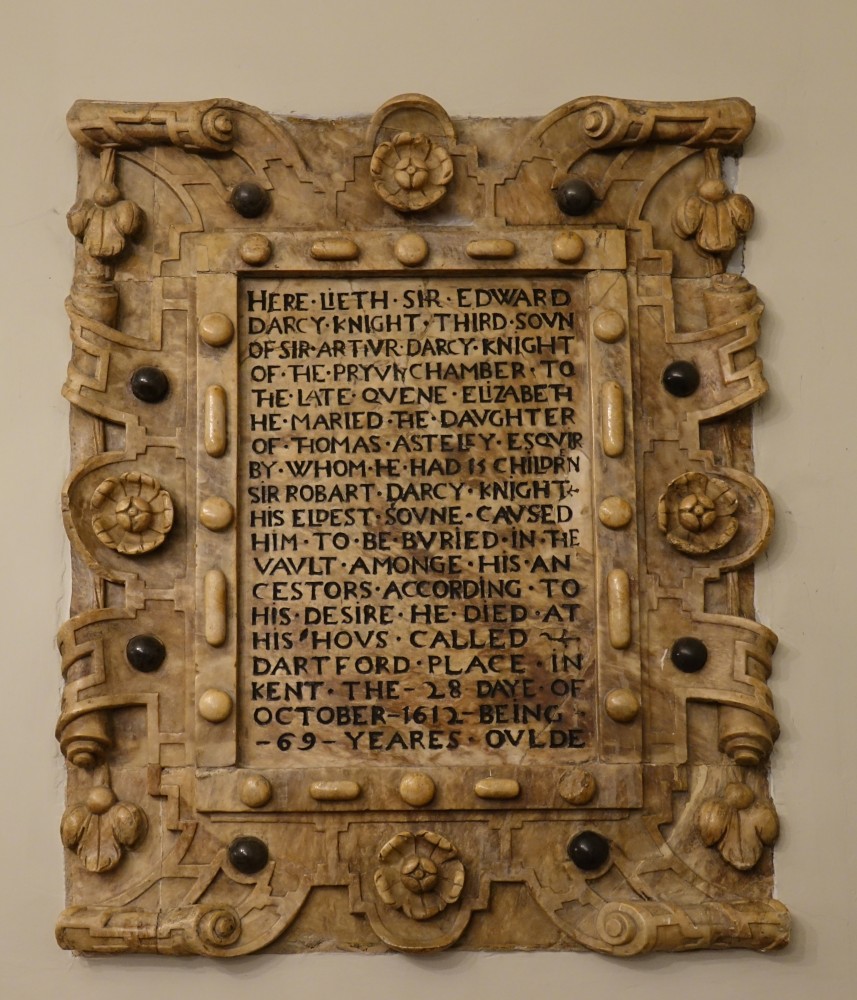 HERE·LIETH·SIR·EDWARD
DARCY·KNIGHT·THIRD·SOVN
OF·SIR·ARTHVR·DARCY·KNIGHT
OF·THE·PRYVY·CHAMBER·TO
THE·LATE·QVENE·ELIZABETH
HE·MARIED·THE·DAVGHTER
OF·THOMAS·ASTELEY·ESQVIR
BY·WHOM·HE·HAD 15 CHILDRN
SIR ROBART·DARCY·KNIGHT
HIS ELDEST·SOVNE·CAVSED
HIM·TO·BE·BVRIED·IN·THE
VAVLT·AMONGE·HIS·AN
CESTORS·ACCORDING·TO
HIS·DESIRE·HE·DIED·AT
HIS HOVS·CALLED
DARTFORD·PLACE·IN
KENT·THE-28 DAYE·OF
OCTOBER-1612-BEING·
-69-YEARES·OVLDE